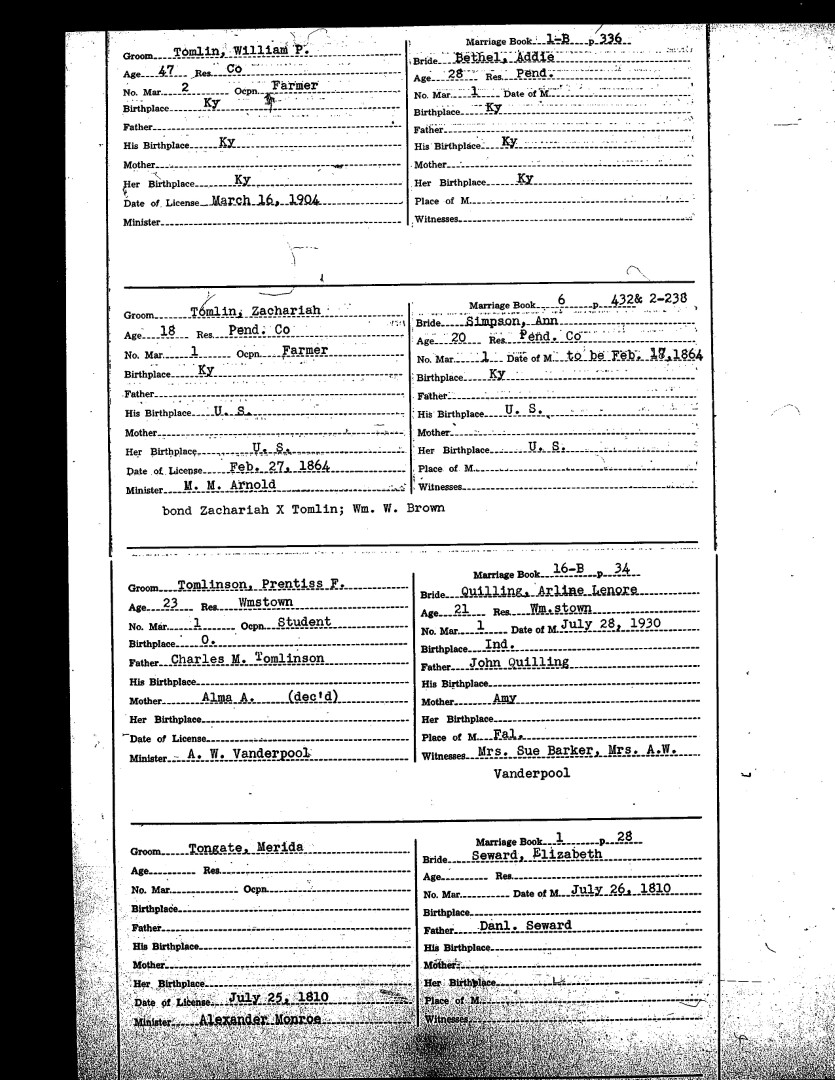 Marriage Book 1-B p 336
Groom Tomlin, William P. Bride Bethel, Addie
Age 47 Res Co Age 28 Res Pend.
No. Mar. 2 Ocpn. Farmer No. Mar. 1 Date of M.
Birthplace Ky Birthplace Ky
Father Father
His Birthplace Ky His Birthplace Ky
Mother Mother
Her Birthplace Ky Her Birthplace Ky
Date of License March 16, 1904 Place of M.
Minister Witnesses
Marriage Book 6 p 432& 2-238
Groom Tomlin, Zachariah Bride Simpson, Ann
Age 18 Res Pend. Co Age 20 Res Pend. Co
No. Mar. 1 Ocpn. Farmer No. Mar. 1 Date of M. to be Feb. ,1864
Birthplace Ky Birthplace Ky
Father Father
His Birthplace U. S. His Birthplace U. S.
Mother Mother
Her Birthplace U. S. Her Birthplace U. S.
Date of License Feb. 27, 1864 Place of M.
Minister M. M. Arnold Witnesses
bond Zachariah X Tomlin; Wm. W. Brown
Marriage Book 16-B p 34
Groom Tomlinson, Prentiss F. Bride Quilling, Arline Lenore
Age 23 Res Wmstown Age 21 Res Wm.stown
No. Mar. 1 Ocpn. Student No. Mar. 1 Date of M. July 28, 1930
Birthplace O. Birthplace Ind.
Father Charles M. Tomlinson Father John Quilling
His Birthplace His Birthplace
Mother Alma A. (dec'd) Mother Amy
Her Birthplace Her Birthplace
Date of License Place of M. Fal.
Minister A. W. Vanderpool Witnesses Mrs. Sue Barker, Mrs. A.W.
Vanderpool
Marriage Book 1 p 28
Groom Tongate, Merida Bride Seward, Elizabeth
Age Res Age Res
No. Mar. Ocpn. No. Mar. Date of M. July 26, 1810
Birthplace Birthplace
Father Father Danl. Seward
His Birthplace His Birthplace
Mother Mother
Her Birthplace Her Birthplace
Date of License July 25, 1810 Place of M.
Minister Alexander Monroe Witnesses